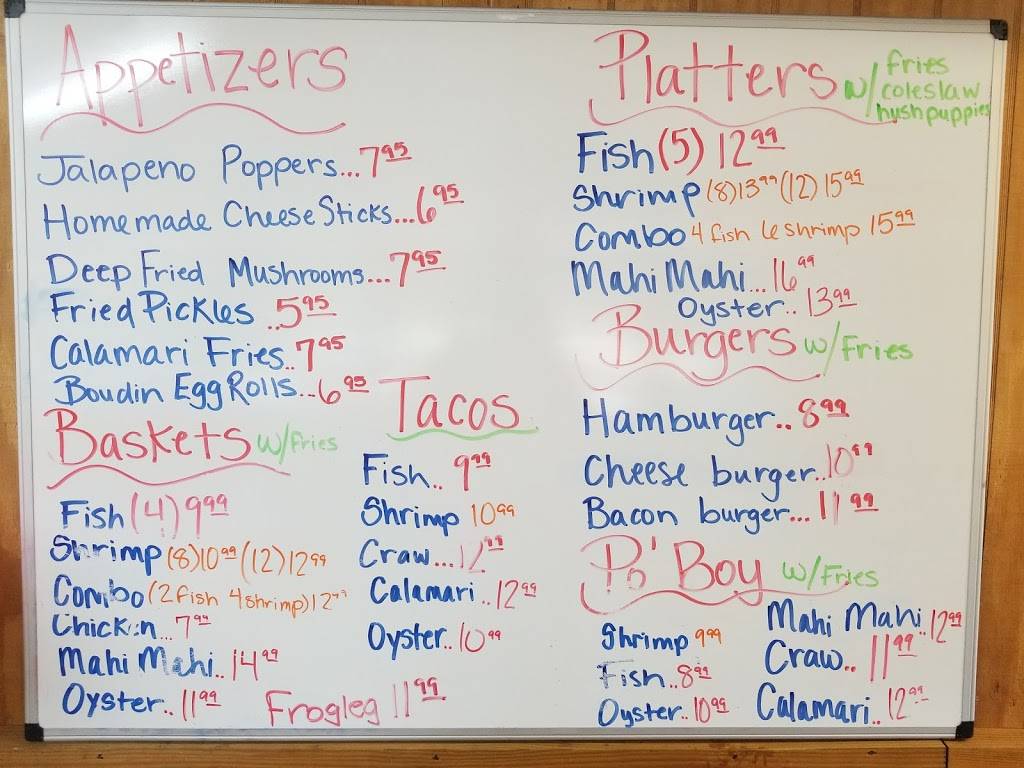 Appetizers
Jalapeno Poppers...7.95
Homemade Cheese Sticks...6.95
Deep Fried Mushrooms...7.95
Fried Pickles ..5.95
Calamari Fries..7.95
Boudin Egg Rolls...6.95
Baskets w/Fries
Fish (4) 9.99
Shrimp (8) 10.99 (12) 12.99
Combo (2 fish 4 shrimp) 12.99
Chicken...7.99
Mahi Mahi..14.99
Oyster..11.99
Frogleg 11.99
Tacos
Fish.. 9.99
Shrimp 10.99
Craw...12.99
Calamari..12.99
Oyster..10.99
Platters w/ fries
coleslaw
hushpuppies
Fish (5) 12.99
Shrimp (8) 13.99 (12) 15.99
Combo 4 fish 6 shrimp 15.99
Mahi Mahi...16.99
Oyster..13.99
Burgers w/Fries
Hamburger..8.99
Cheese burger..10.99
Bacon burger...11.99
Po' Boy w/Fries
Shrimp 9.99
Fish..8.99
Oyster..10.99
Mahi Mahi..12.99
Craw..11.99
Calamari..12.99